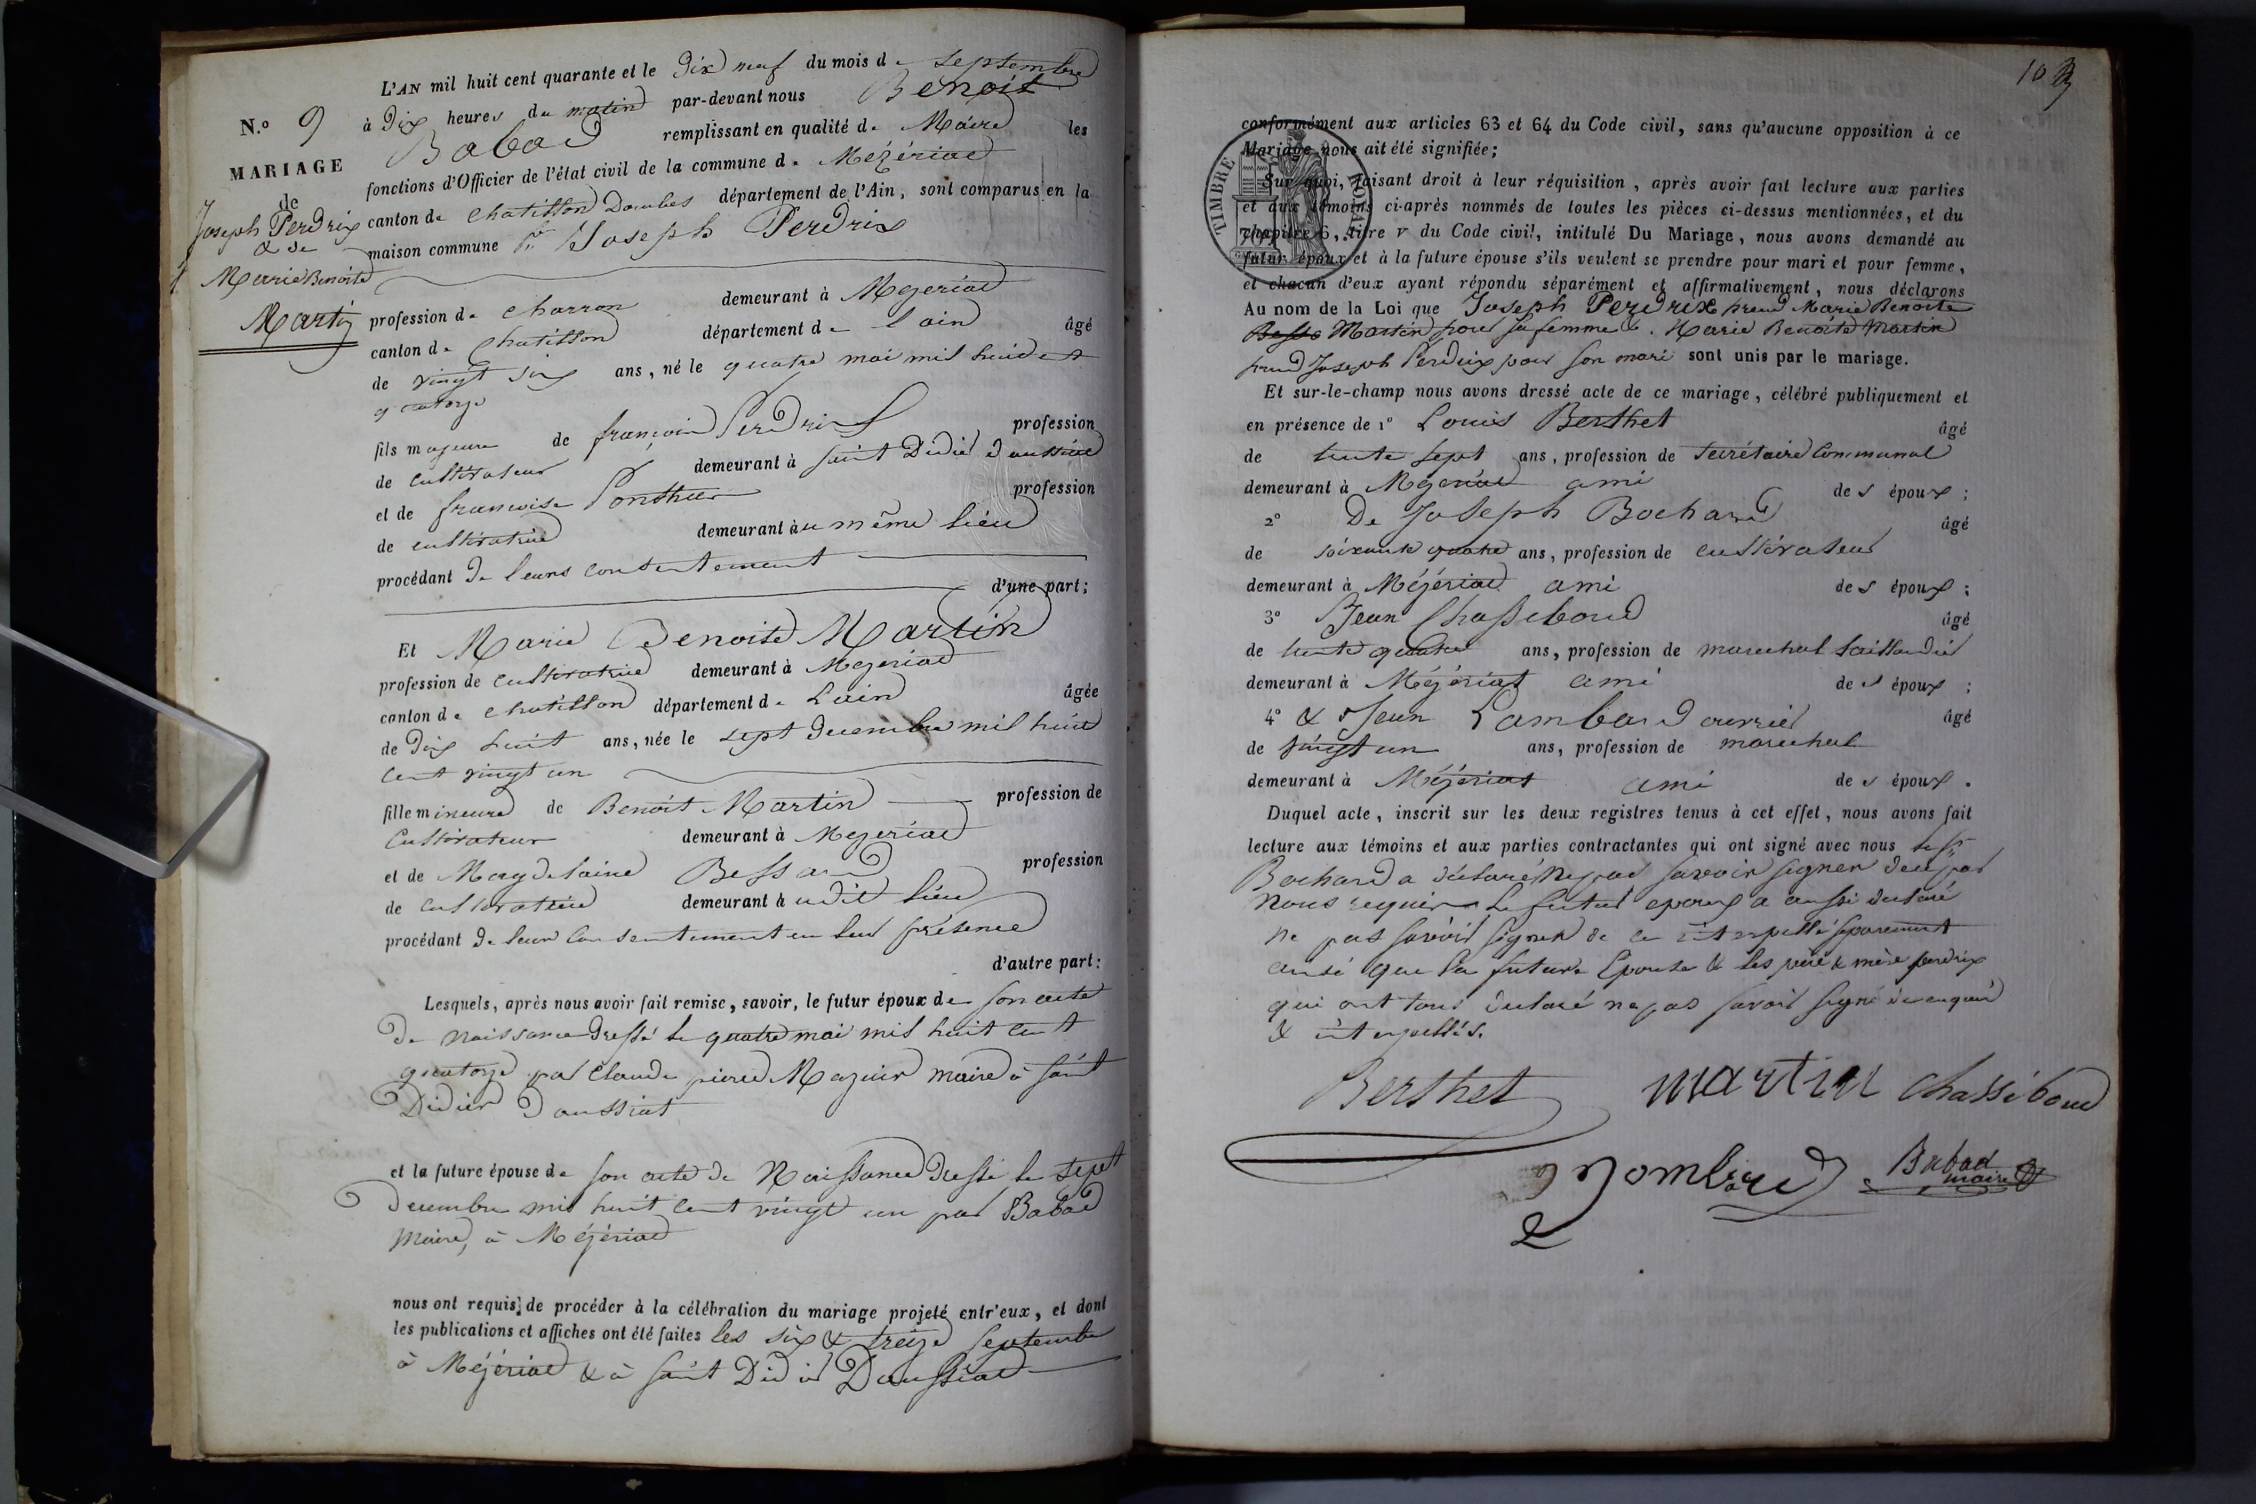 L'AN mil huit cent quarante et le Dix neuf du mois de Septembre
N.º 9 à Dix heures du matin par-devant nous Benoit
Babad remplissant en qualité de Maire les
MARIAGE
fonctions d'Officier de l'état civil de la commune de Mézériat
de
Joseph Perdrix
& de
Marie Benoite
Martin
canton de Chatillon Dombes département de l'Ain, sont comparus en la
maison commune Joseph Perdrix
profession de charron demeurant à Mezeriat
canton de Chatillon département de l'ain âgé
de vingt six ans, né le quatre mai mil huit cent
quatorze
fils majeur de françois Perdrix profession
de cultivateur demeurant à saint Didier d'aussiat
et de francoise Ponthus profession
de cultivatrice demeurant àu même lieu
procédant de leurs consentement
d'une part;
Et Marie Benoite Martin
profession de cultivatrice demeurant à Mezeriat
canton de chatillon département de L'ain âgée
de Dix huit ans, née le sept decembre mil huit
cent vingt un
fille mineure de Benoit Martin profession de
Cultivateur demeurant à Mezeriat
et de Magdelaine Bessard profession
de cultivatrice demeurant àudit lieu
procédant de leur consentement en leur présence
d'autre part:
Lesquels, après nous avoir fait remise, savoir, le futur époux de son acte
de Naissance dressé le quatre mai mil huit cent
quatorze par Claude pierre Mazuir maire à saint
Didier D'aussiat
et la future épouse de son acte de Naissance dressé le sept
Decembre mil huit cent vingt un par Babad
Maire, à Mézériat
nous ont requis de procéder à la célébration du mariage projeté entr'eux, et dont
les publications et affiches ont été faites les six & treize Septembre
à Mézériat & à saint Didier D'aussiat
10
conformément aux articles 63 et 64 du Code civil, sans qu'aucune opposition à ce
Mariage nous ait été signifiée;
TIMBRE ROYAL
Sur quoi, faisant droit à leur réquisition, après avoir fait lecture aux parties
et aux témoins ci-après nommés de toutes les pièces ci-dessus mentionnées, et du
chapitre 6, titre V du Code civil, intitulé Du Mariage, nous avons demandé au
futur époux et à la future épouse s'ils veulent se prendre pour mari et pour femme,
et chacun d'eux ayant répondu séparément et affirmativement, nous déclarons
Au nom de la Loi que Joseph Perdrix prend Marie Benoite
Martin pour sa femme & Marie Benoite Martin
prend Joseph Perdrix pour son mari sont unis par le mariage.
Et sur-le-champ nous avons dressé acte de ce mariage, célébré publiquement et
en présence de 1º Louis Berthet âgé
de trente sept ans, profession de Secrétaire Communal
demeurant à Mézériat ami des époux;
2º De Joseph Bochard âgé
de soixante quatre ans, profession de cultivateur
demeurant à Mézériat ami des époux;
3º Jean Chassiboud âgé
de trente quatre ans, profession de marechal taillandier
demeurant à Mézériat ami des époux;
4º & Jean Lambard ouvrier âgé
de vingt un ans, profession de marechal
demeurant à Mézériat ami des époux.
Duquel acte, inscrit sur les deux registres tenus à cet effet, nous avons fait
lecture aux témoins et aux parties contractantes qui ont signé avec nous
Bochard a déclaré Ne pas savoir signer de ce par
Nous requier Le futur epoux a aussi declaré
Ne pas savoir signer de ce interpellé séparement
ainsi que la future Epouse & les père & mère perdrix
qui ont tous declaré ne pas savoir signé de ce enquis
& interpellés.
Berthet martin chassiboud
Babad
maire